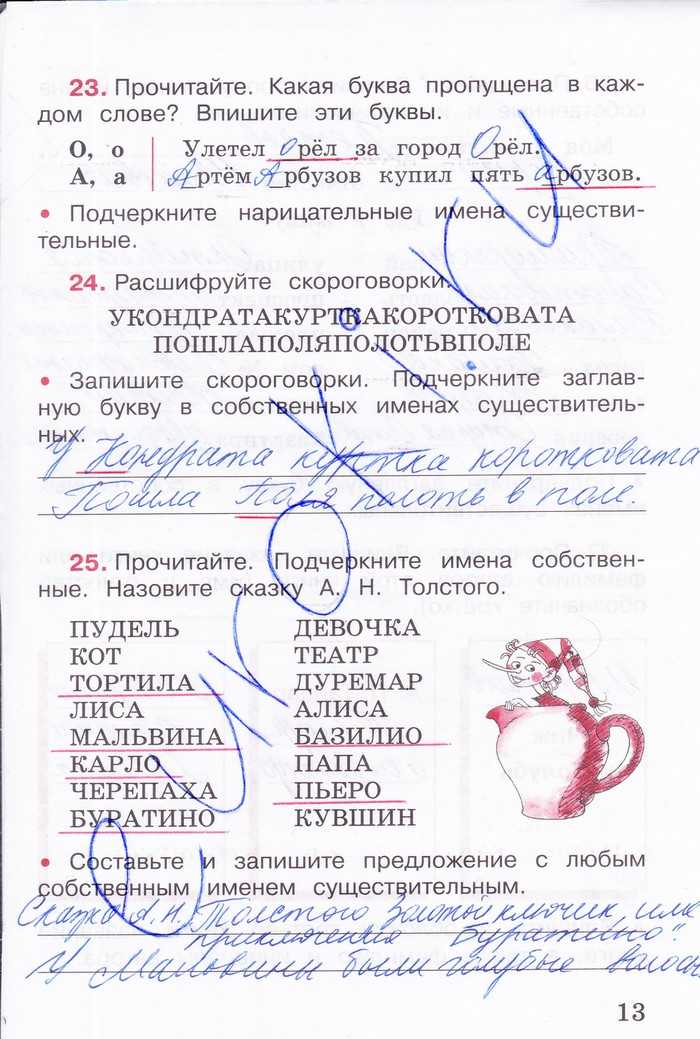 23. Прочитайте. Какая буква пропущена в каж-
дом слове? Впишите эти буквы.
О, о Улетел орёл за город Орёл.
А, а Артём Арбузов купил пять арбузов.
• Подчеркните нарицательные имена существи-
тельные.
24. Расшифруйте скороговорки.
УКОНДРАТАКУРТКАКОРОТКОВАТА
ПОШЛАПОЛЯПОЛОТЬВПОЛЕ
• Запишите скороговорки. Подчеркните заглав-
ную букву в собственных именах существитель-
ных.
У Кондрата куртка коротковата
Пошла Поля полоть в поле.
25. Прочитайте. Подчеркните имена собствен-
ные. Назовите сказку А. Н. Толстого.
ПУДЕЛЬ ДЕВОЧКА
КОТ ТЕАТР
ТОРТИЛА ДУРЕМАР
ЛИСА АЛИСА
МАЛЬВИНА БАЗИЛИО
КАРЛО ПАПА
ЧЕРЕПАХА ПЬЕРО
БУРАТИНО КУВШИН
• Составьте и запишите предложение с любым
собственным именем существительным.
Сказка А. Н. Толстого Золотой ключик, или
приключения Буратино".
У Мальвины были голубые волосы
13